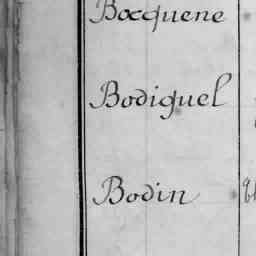 Bocquene
Bodiguel
Bodin